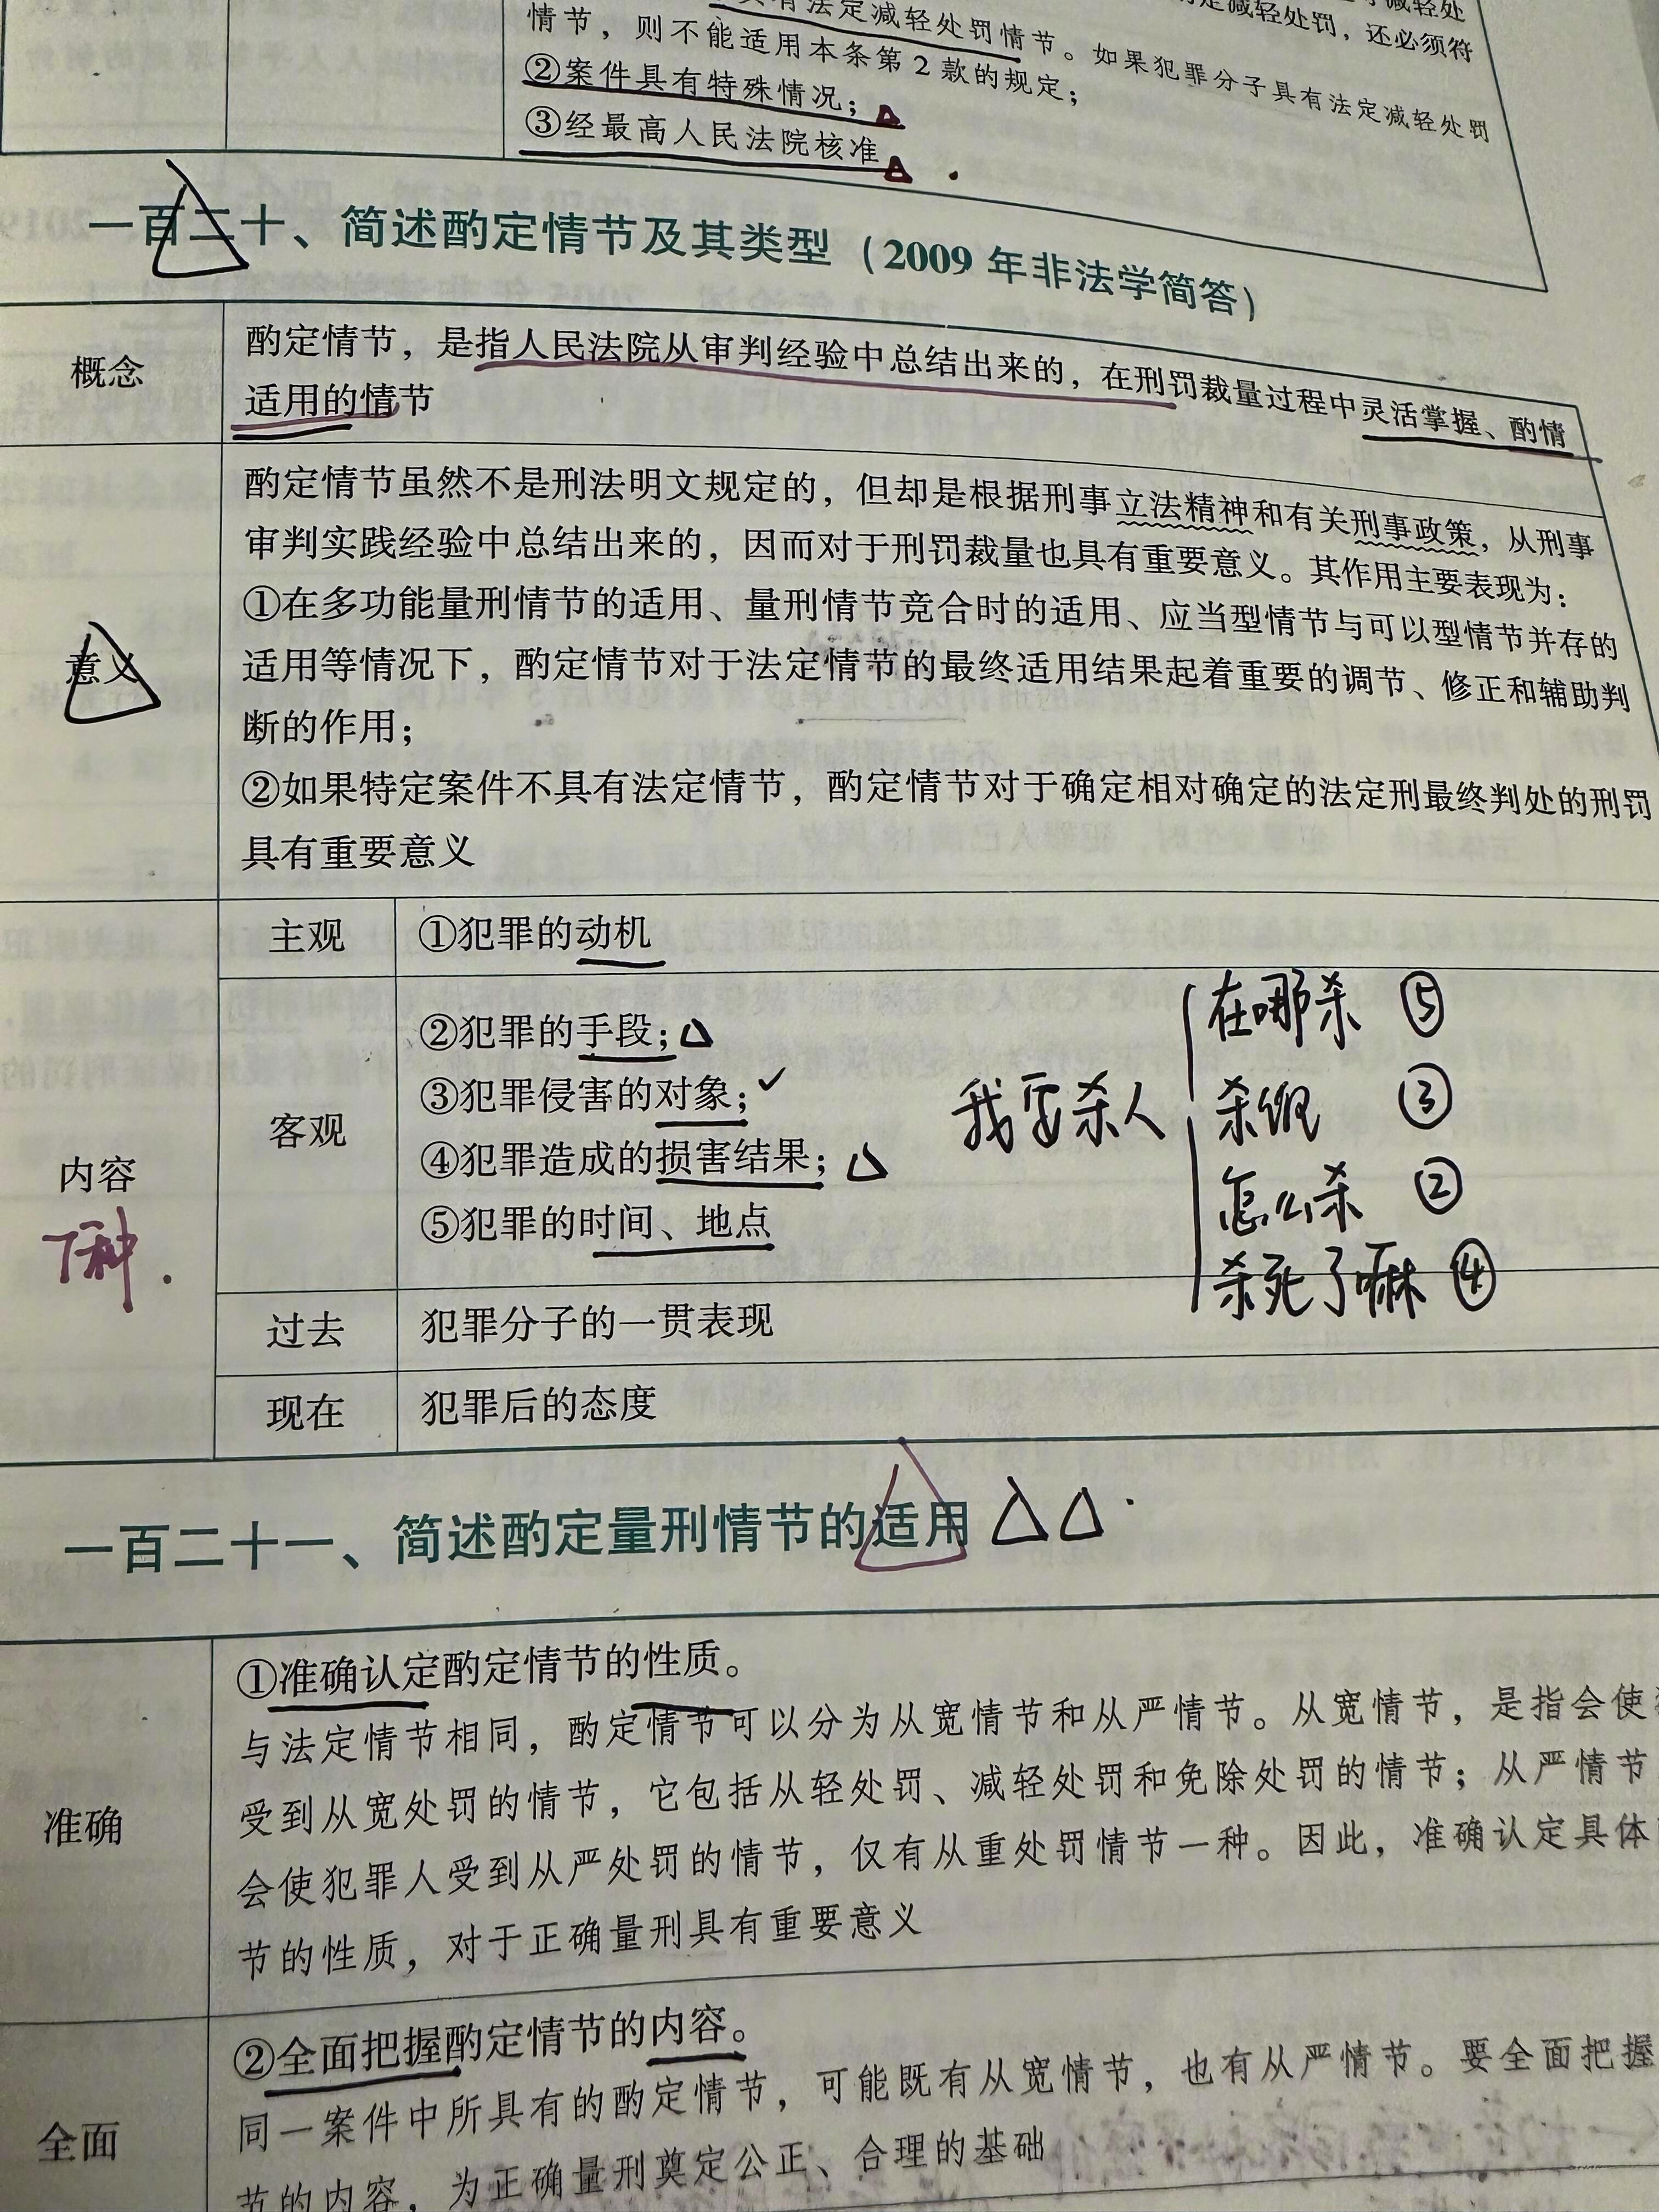 有法定减轻处罚情节。如果犯罪分子具有法定减轻处罚
情节，则不能适用本条第2款的规定；
②案件具有特殊情况；
③经最高人民法院核准
一百二十、简述酌定情节及其类型（2009年非法学简答）
概念
酌定情节，是指人民法院从审判经验中总结出来的，在刑罚裁量过程中灵活掌握、酌情
适用的情节
意义
酌定情节虽然不是刑法明文规定的，但却是根据刑事立法精神和有关刑事政策，从刑事
审判实践经验中总结出来的，因而对于刑罚裁量也具有重要意义。其作用主要表现为：
①在多功能量刑情节的适用、量刑情节竞合时的适用、应当型情节与可以型情节并存的
适用等情况下，酌定情节对于法定情节的最终适用结果起着重要的调节、修正和辅助判
断的作用；
②如果特定案件不具有法定情节，酌定情节对于确定相对确定的法定刑最终判处的刑罚
具有重要意义
内容
7种
主观
①犯罪的动机
客观
②犯罪的手段；
③犯罪侵害的对象；
④犯罪造成的损害结果；
⑤犯罪的时间、地点
我要杀人
在哪杀 ⑤
杀 ③
怎么杀 ②
杀死了嘛 ④
过去
犯罪分子的一贯表现
现在
犯罪后的态度
一百二十一、简述酌定量刑情节的适用
准确
①准确认定酌定情节的性质。
与法定情节相同，酌定情节可以分为从宽情节和从严情节。从宽情节，是指会使
受到从宽处罚的情节，它包括从轻处罚、减轻处罚和免除处罚的情节；从严情节
会使犯罪人受到从严处罚的情节，仅有从重处罚情节一种。因此，准确认定具体
节的性质，对于正确量刑具有重要意义
全面
②全面把握酌定情节的内容。
同一案件中所具有的酌定情节，可能既有从宽情节，也有从严情节。要全面把握
节的内容，为正确量刑奠定公正、合理的基础